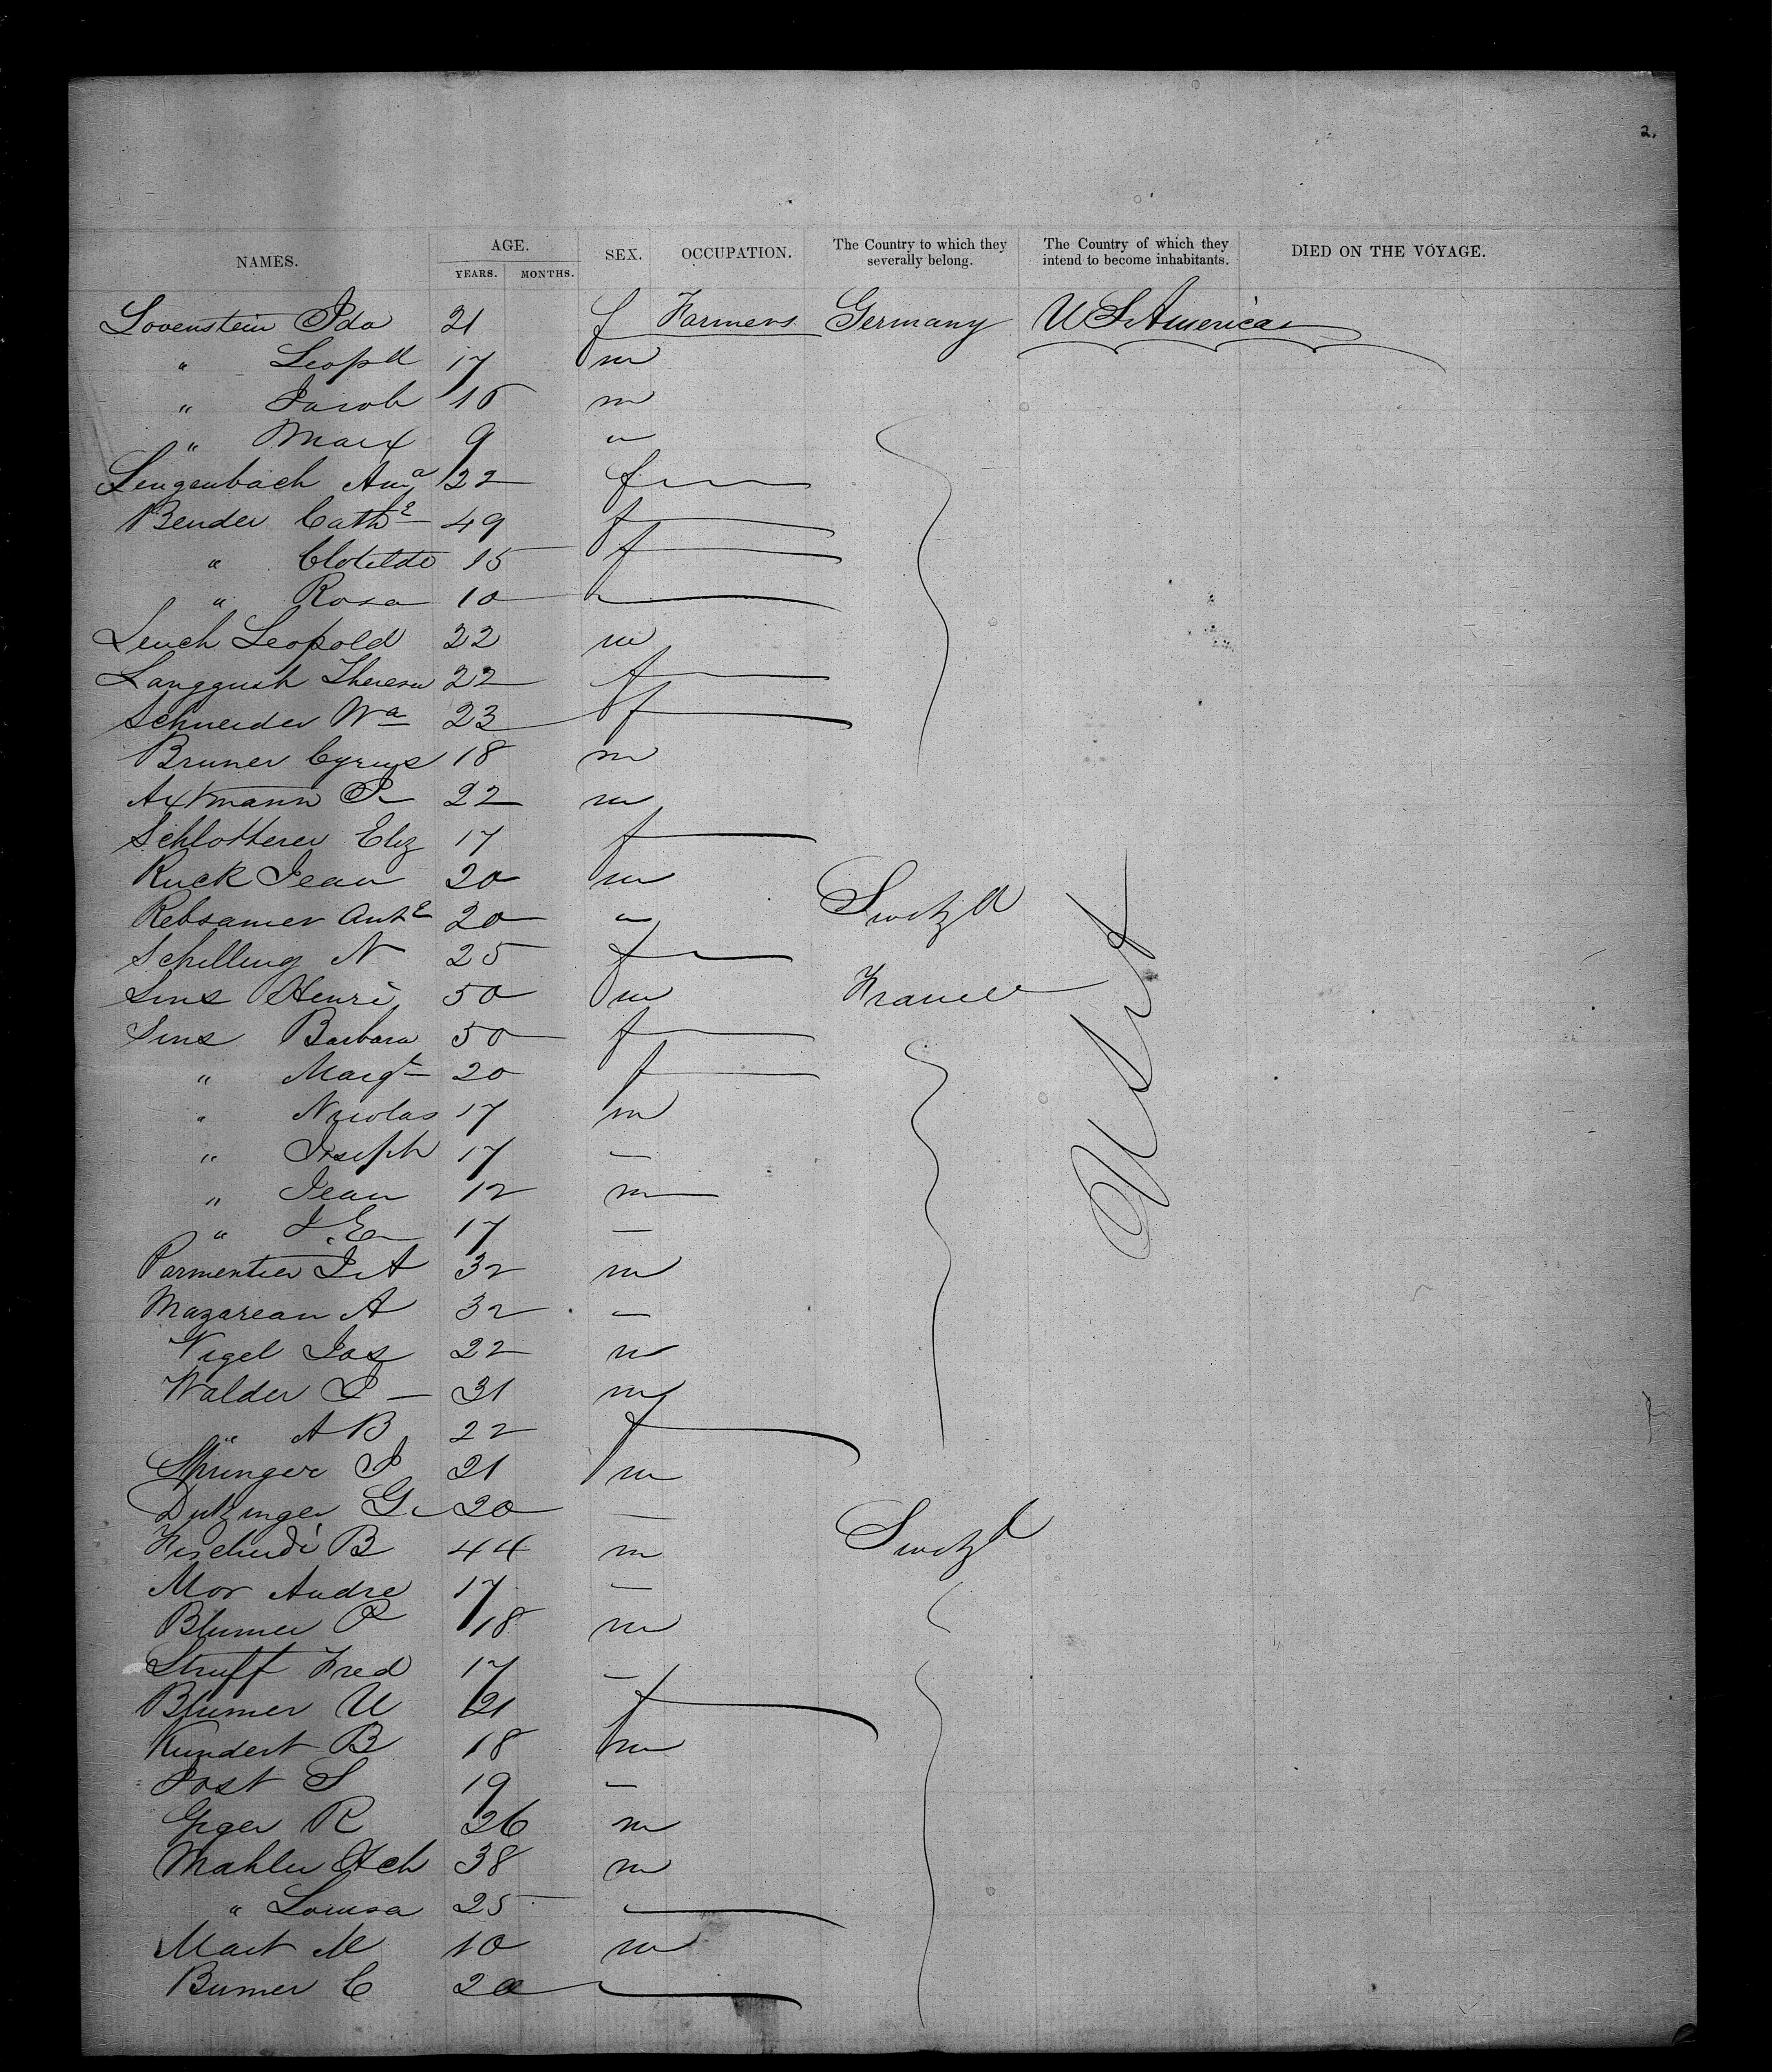 2.
NAMES. AGE. YEARS. MONTHS. SEX. OCCUPATION. The Country to which they severally belong. The Country of which they intend to become inhabitants. DIED ON THE VOYAGE.
Lovenstein Ida 21 f Farmers Germany U S America
" Leopld 17 m
" Jacob 16 m
" Marx 9 "
Lengenbach Anna 22 f
Bender Cathe 49 f
" Clotilde 15 f
" Rosa 10
Leuch Leopold 22 m
Langguth Theresa 22 f
Schneider Wa 23 f
Bruner Cyrus 18 m
Axtmann P 22 m
Schlotterer Eliz 17 f
Ruck Jean 20 m
Rebsamer Ante 20 " Switzd
Schilling N 25 f
Sins Henri 50 m France
Sins Barbara 50 f
" Margt 20 f
" Nicolas 17 m
" Joseph 17 —
" Jean 12 m
" J. E 17 —
Parmentier J A 32 m
Mazareau A 32 —
Vigel Jos 22 m
Walder J — 31 m
" A B 22 f
Springer J 21 m
Dutzinger G 20 —
B 44 m Switzd
Mor Andre 17 —
Blumer P 18 m
Struff Fred 17 —
Blumer U 21 f
Kundert B 18 m
Jost S 19 —
R 26 m
Mahler Hch 38 m
" Louisa 25
Mart M 10 m
Bumer C 20
U S A